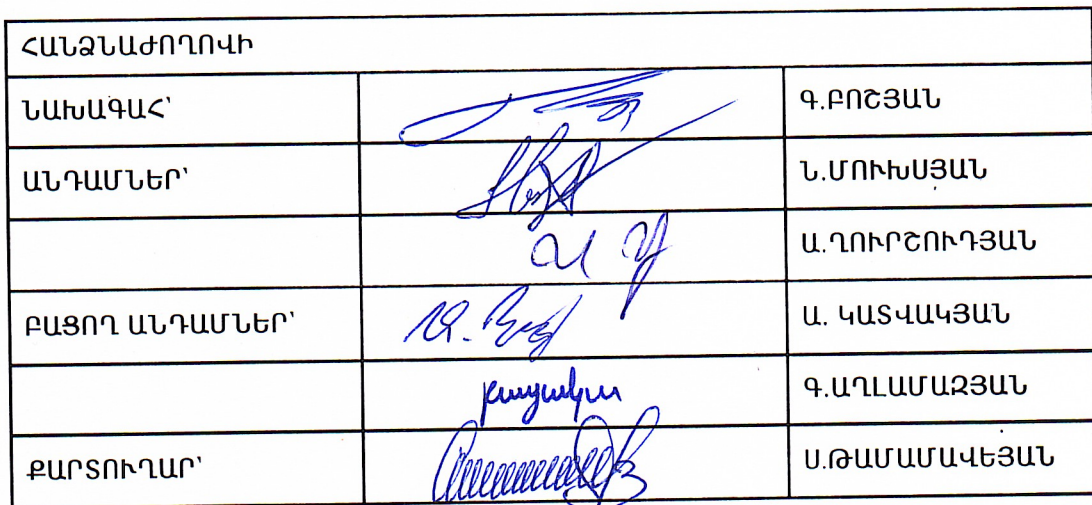 ՀԱՆՁՆԱԺՈՂՈՎԻ
ՆԱԽԱԳԱՀ՝ Գ.ԲՈՇՅԱՆ
ԱՆԴԱՄՆԵՐ՝ Ն.ՄՈՒԽՍՅԱՆ
Ա.ՂՈՒՐՇՈՒԴՅԱՆ
ԲԱՑՈՂ ԱՆԴԱՄՆԵՐ՝ Ա. ԿԱՏՎԱԿՅԱՆ
բացակա Գ.ԱՂԼԱՄԱԶՅԱՆ
ՔԱՐՏՈՒՂԱՐ՝ Ս.ԹԱՄԱՄԱՎԵՅԱՆ